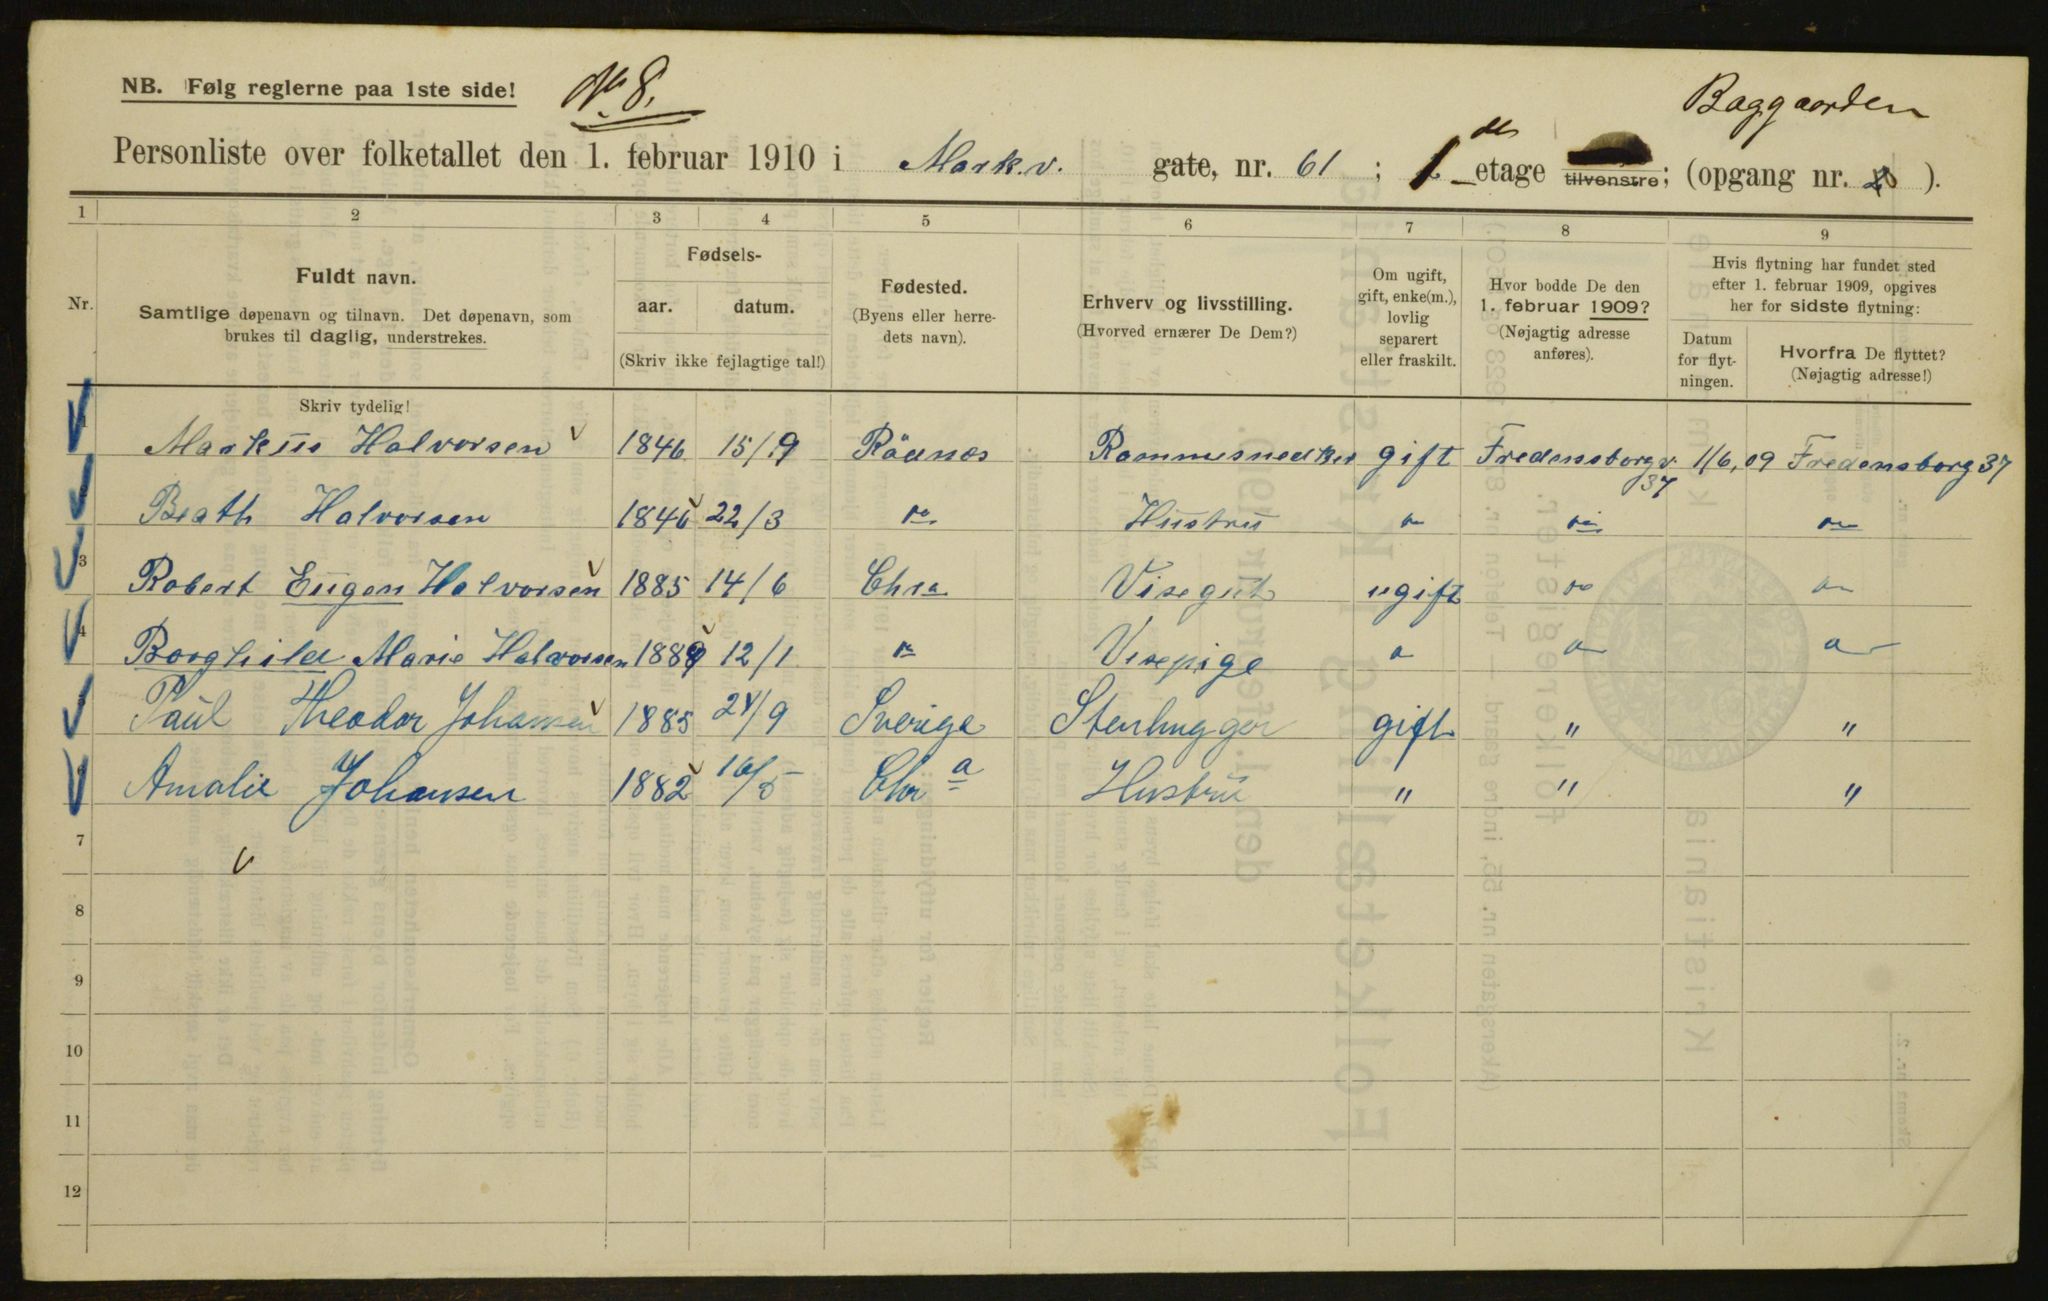 NB. Følg reglerne paa 1ste side!
No 8.
Baggaarden
Personliste over folketallet den 1. februar 1910 i Markv. gate, nr. 61 ; 1 des etage tilvenstre; (opgang nr. ).
1 2 3 4 5 6 7 8 9
Nr.
Fuldt navn.
Samtlige døpenavn og tilnavn. Det døpenavn, som
brukes til daglig, understrekes.
Skriv tydelig!
Fødsels-
aar. datum.
(Skriv ikke fejlagtige tal!)
Fødested.
(Byens eller herre-
dets navn).
Erhverv og livsstilling.
(Hvorved ernærer De Dem?)
Om ugift,
gift, enke(m.),
lovlig
separert
eller fraskilt.
Hvor bodde De den
1. februar 1909?
(Nøjagtig adresse
anføres).
Hvis flytning har fundet sted
efter 1. februar 1909, opgives
her for sidste flytning:
Datum
for flyt-
ningen.
Hvorfra De flyttet?
(Nøjagtig adresse!)
Markus Halvorsen 1846 15/9 Råenes Rammesnedker gift Fredensborgv. 37 1/6, 09 Fredensborg 37
Beath Halvorsen 1846 22/3 " Hustru " " "
3 Robert Eugen Halvorsen 1885 14/6 Chra Visegut ugift " "
4 Borghild Marie Halvorsen 1889 12/1 " Visepige " " "
Paul Theodor Johansen 1885 24/9 Sverige Stenhugger gift " "
Amalie Johansen 1882 16/5 Chra Hustru " " "
7
8
9
10
11
12